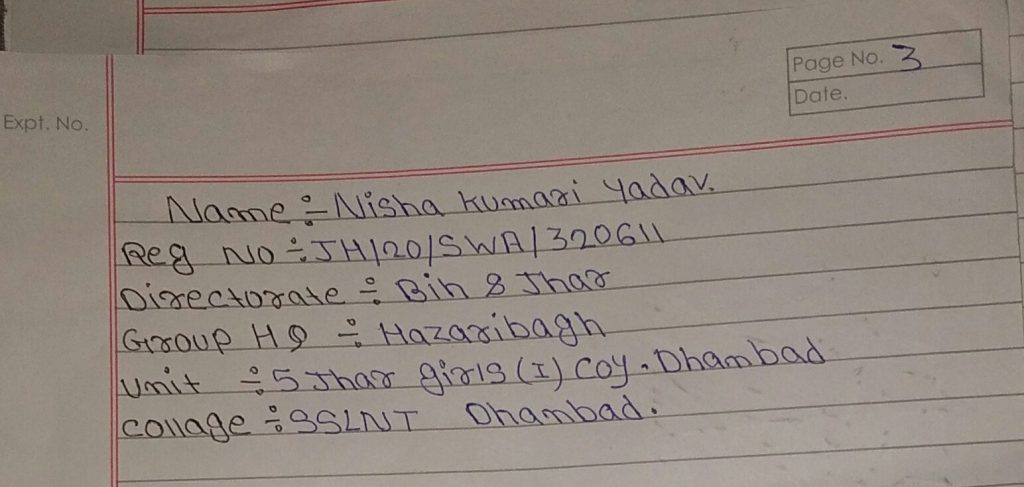 Page No. 3
Date.
Expt. No.
Name ÷ Nisha Kumari Yadav.
Reg No ÷ JH/20/SWA/320611
Directorate ÷ Bih & Jhar
Group HQ ÷ Hazaribagh
Unit ÷ 5 Jhar girls (I) Coy. Dhambad
Collage ÷ SSLNT Dhambad.